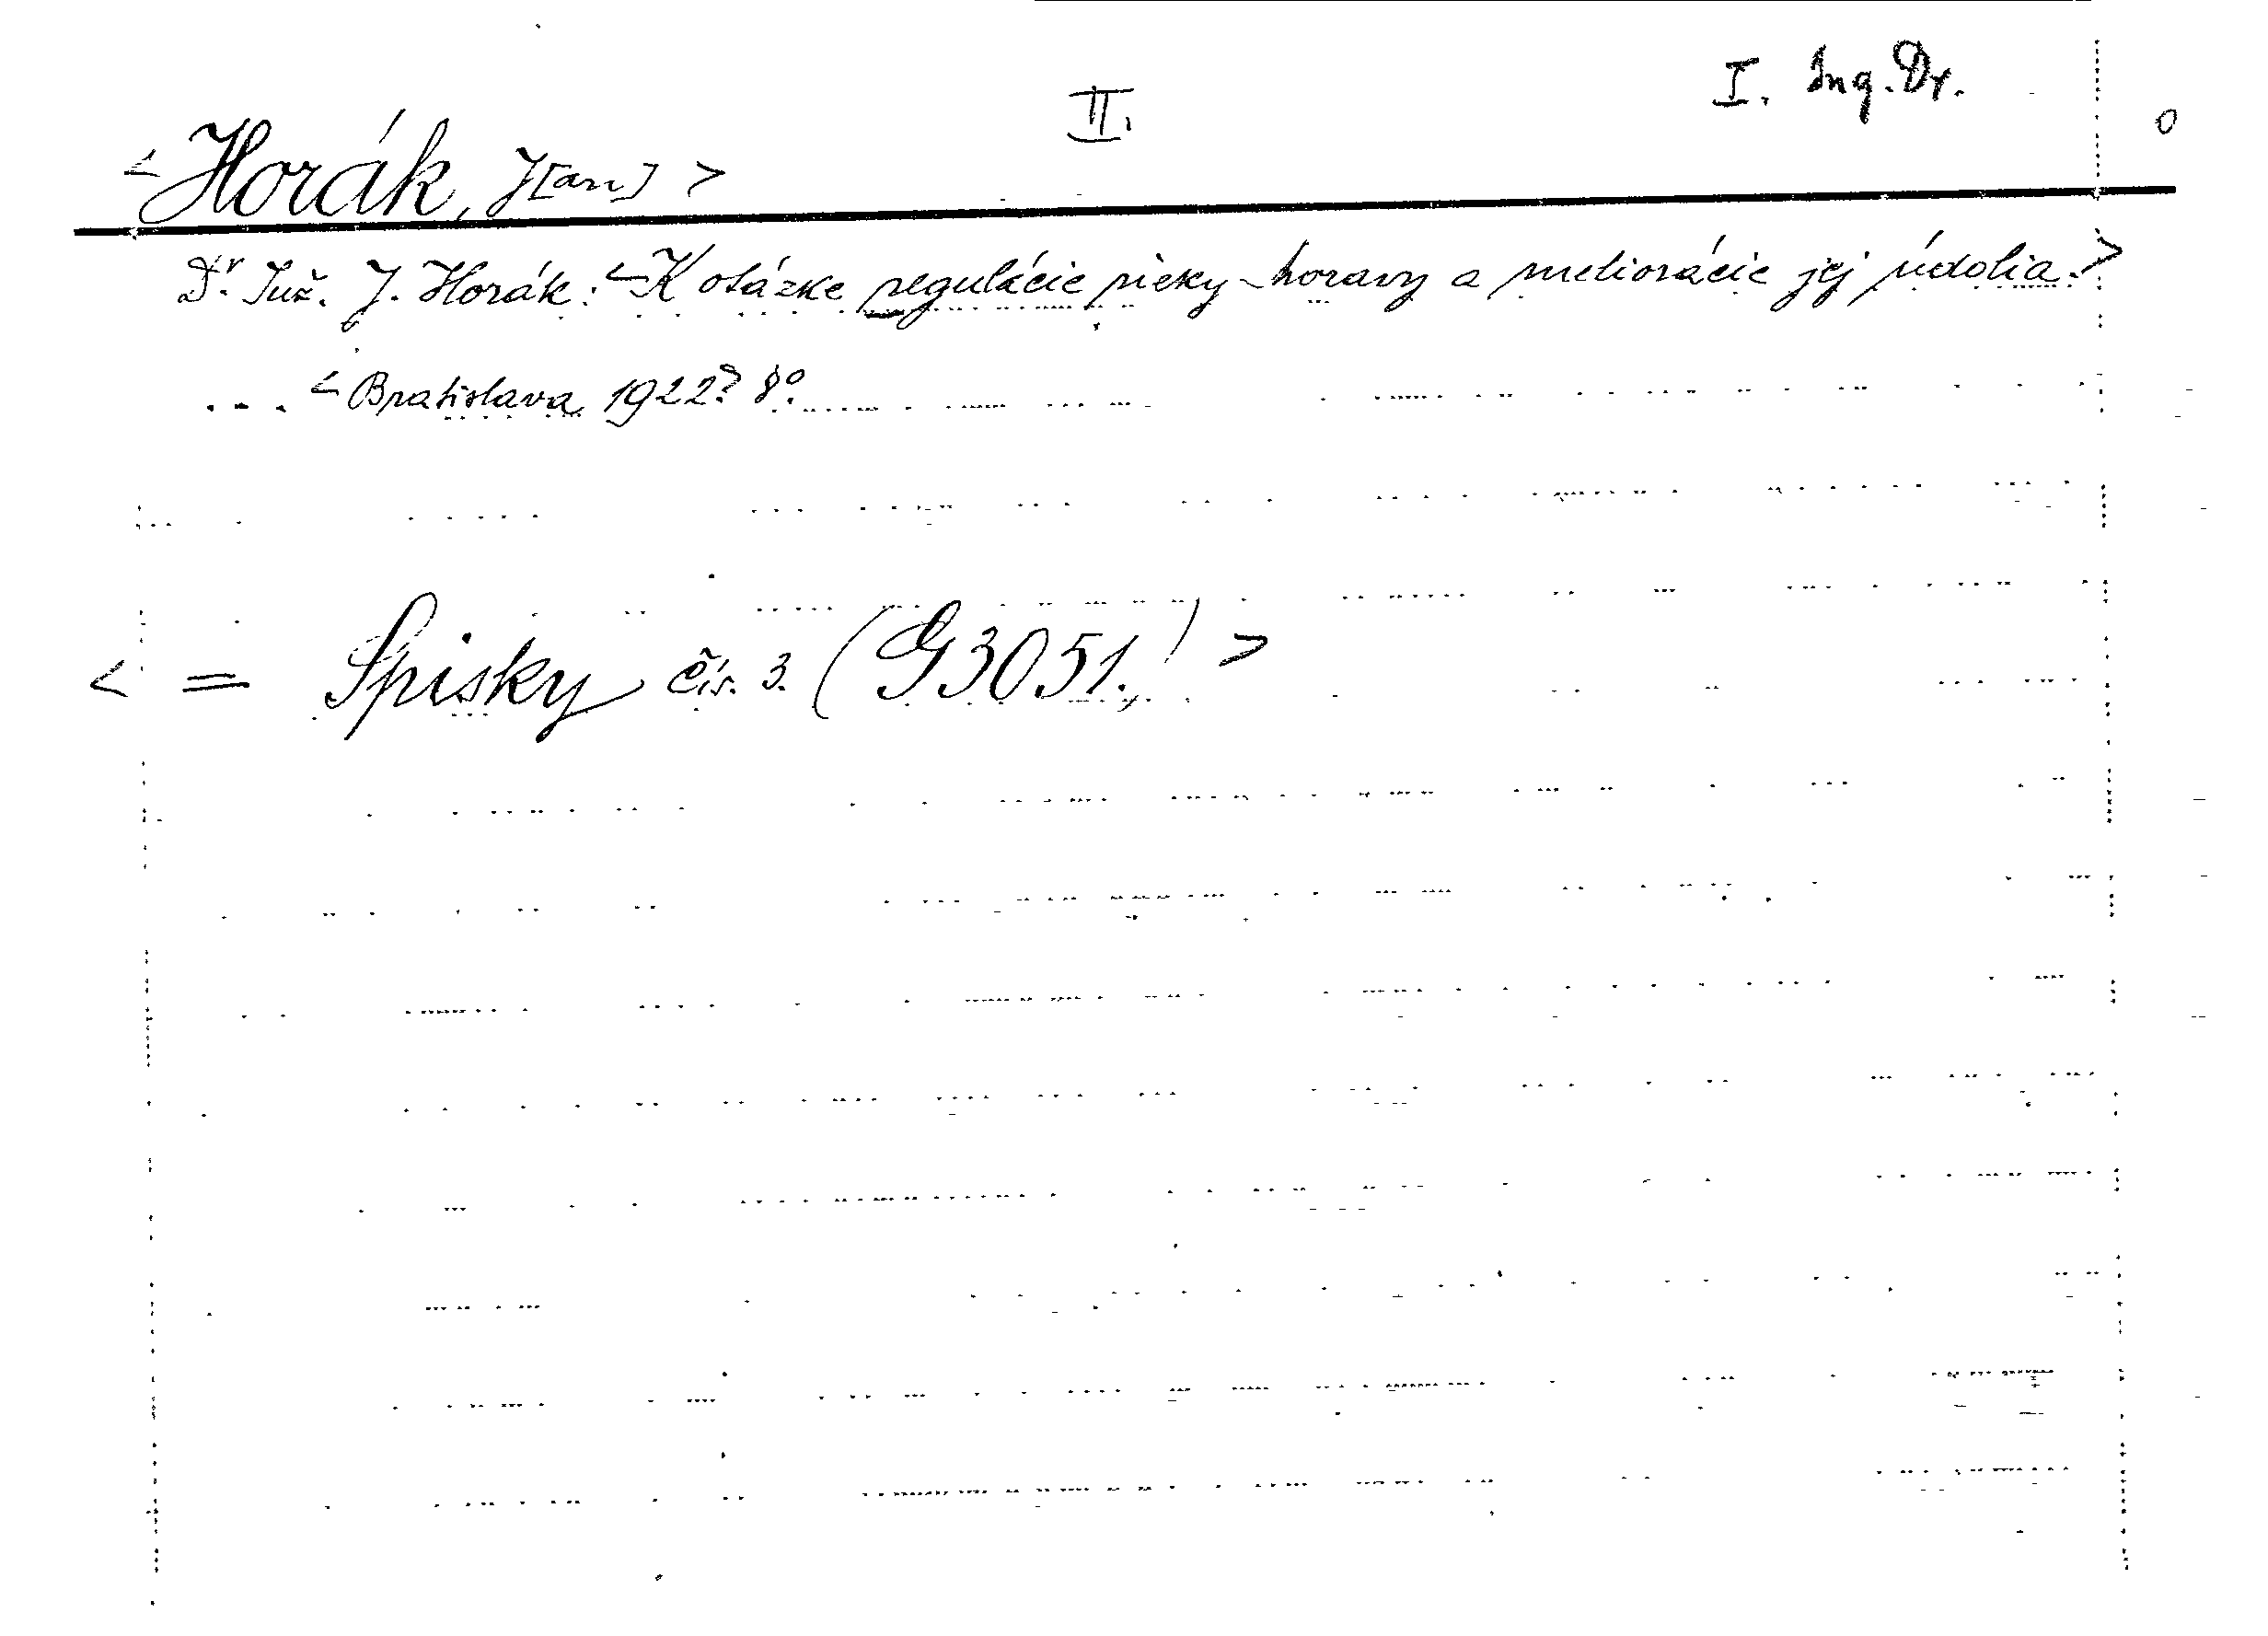 I. Ing. Dr.
II.
<Horák, J[an]> 0
Dr. Inž. J. Horák: <K otázke regulácie rieky Moravy a meliorácie jej údolia.>
... <Bratislava 1922? 8°.
< = Spisky čís. 3. (G3051.) >